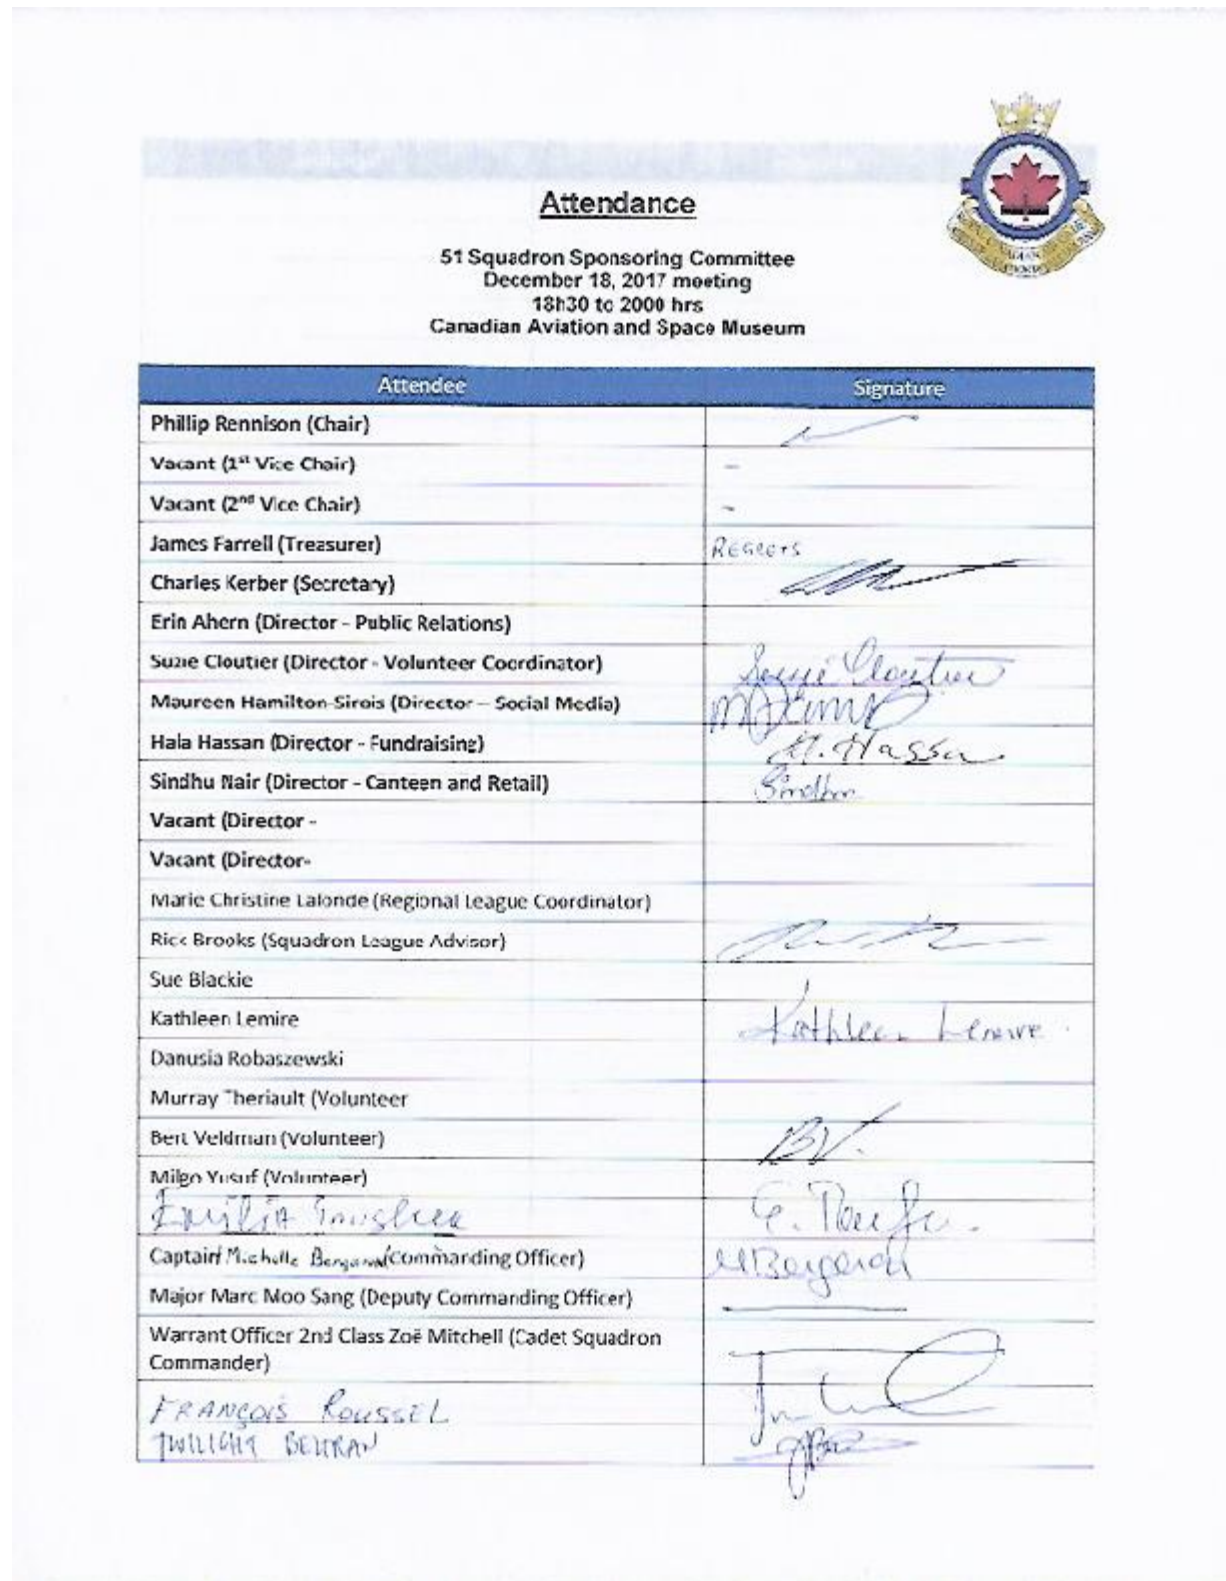 Attendance
51 Squadron Sponsoring Committee
December 18, 2017 meeting
18h30 to 2000 hrs
Canadian Aviation and Space Museum
Attendee Signature
Phillip Rennison (Chair)
Vacant (1st Vice Chair) -
Vacant (2nd Vice Chair) -
James Farrell (Treasurer) REGRETS
Charles Kerber (Secretary)
Erin Ahern (Director - Public Relations)
Suzie Cloutier (Director - Volunteer Coordinator) Suzie Cloutier
Maureen Hamilton-Sirois (Director – Social Media)
Hala Hassan (Director - Fundraising) H. Hassan
Sindhu Nair (Director - Canteen and Retail) Sindhu
Vacant (Director -
Vacant (Director-
Marie Christine Lalonde (Regional League Coordinator)
Rick Brooks (Squadron League Advisor)
Sue Blackie
Kathleen Lemire Kathleen Lemire
Danusia Robaszewski
Murray Theriault (Volunteer
Bert Veldman (Volunteer) BV.
Milgo Yusuf (Volunteer)
Captain Michelle Bergeron (Commanding Officer) MBergeron
Major Marc Moo Sang (Deputy Commanding Officer)
Warrant Officer 2nd Class Zoë Mitchell (Cadet Squadron
Commander)
FRANÇOIS ROUSSEL
TWILIGHT BELTRAN